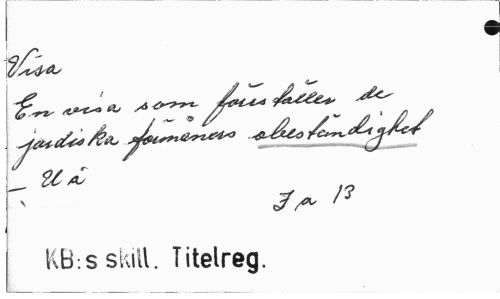 Visa
En visa som föreställer de
jordiska förmåners obeständighet
_ U å
Ja 13
KB:s skill. Titelreg.